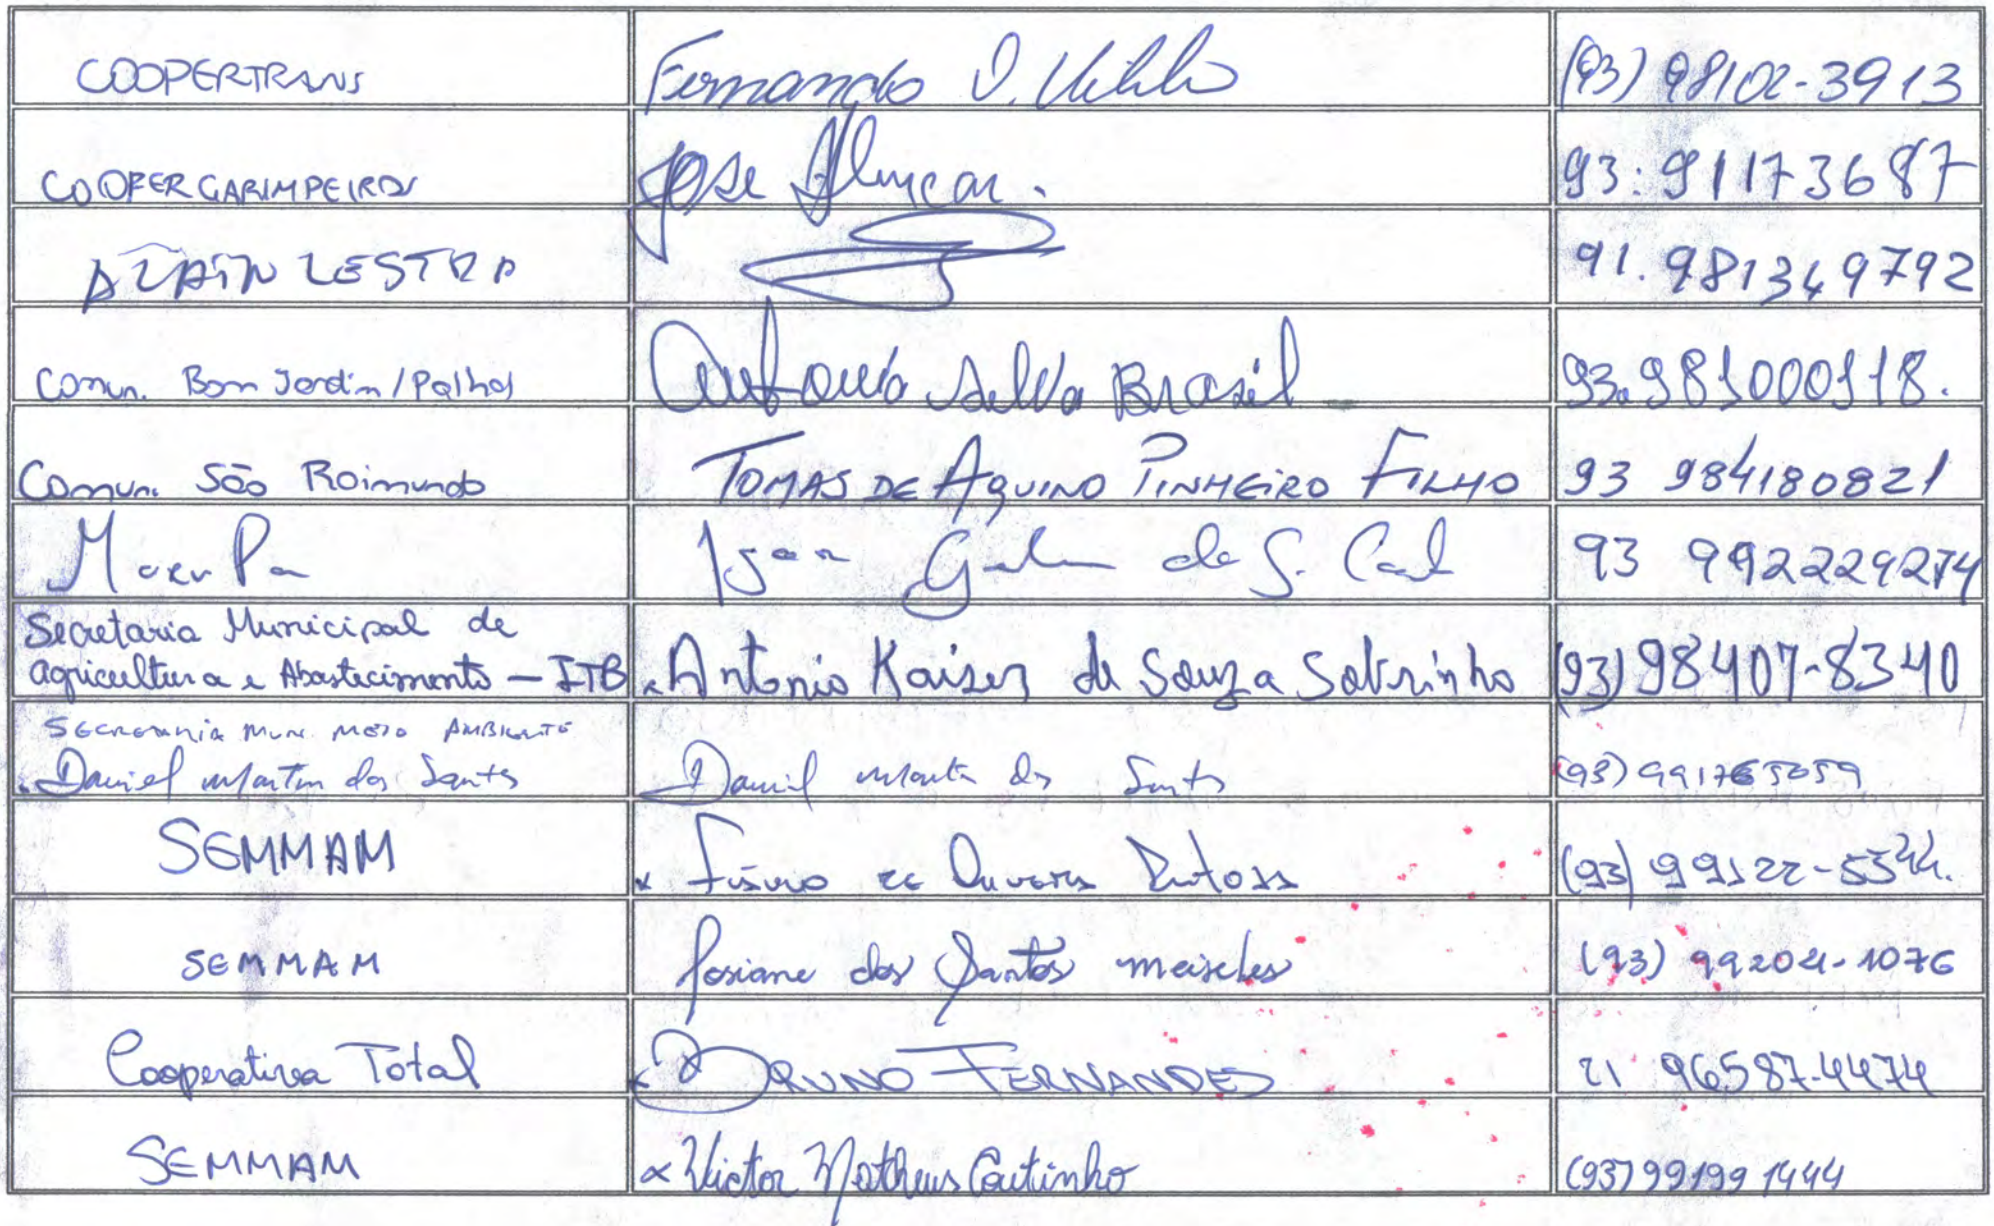 COOPERTRANS Fernando (93) 98102-3913
COOPERGARIMPEIROS Jose Alencar. 93.991173687
ALAIN LESTRA 91.981349792
Comun. Bom Jardin/Palhal Antonio Silva Brasil 93.981000118.
Comun. São Raimundo TOMAS DE AQUINO PINHEIRO FILHO 93 984180821
Igor de S. 93 992229274
Secretaria Municipal de
agricultura e Abastecimento - ITB Antonio Kaiser de Souza Sobrinho (93) 98407-8340
SECRETARIA MUN. MEIO AMBIENTE
Daniel Martin dos Santos Daniel Martin dos Santos (93) 991765059
SEMMAM (93) 99122-5344.
SEMMAM Josiane dos Santos meireles (93) 99204-1076
Cooperativa Total BRUNO FERNANDES 21 96587-4474
SEMMAM Victor Matheus Coutinho (93) 991991444